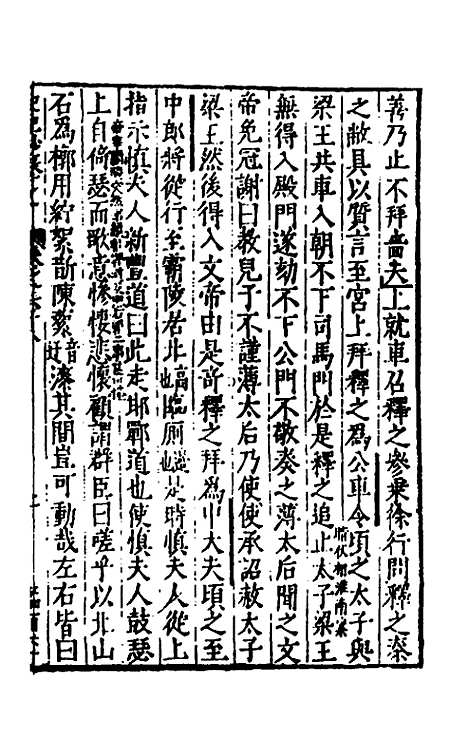 善乃止不拜嗇夫上就車召釋之參乗徐行問釋之秦
之敝具以質言至宮上拜釋之爲公車令頃之太子與
梁王共車入朝不下司馬門於是釋之追止太子梁王
無得入殿門遂劾不下公門不敬奏之薄太后聞之文
帝免冠謝曰教兒子不謹薄太后乃使使承詔赦太子
梁王然後得入文帝由是奇釋之拜爲中大夫頃之至
中郎將從行至霸陵居北臨廁是時慎夫人從上
指示慎夫人新豐道曰此走邯鄲道也使慎夫人鼓瑟
上自倚瑟而歌意慘悽悲懷顧謂群臣曰嗟乎以北山
石爲槨用紵絮斮陳蕠漆其間豈可動哉左右皆曰